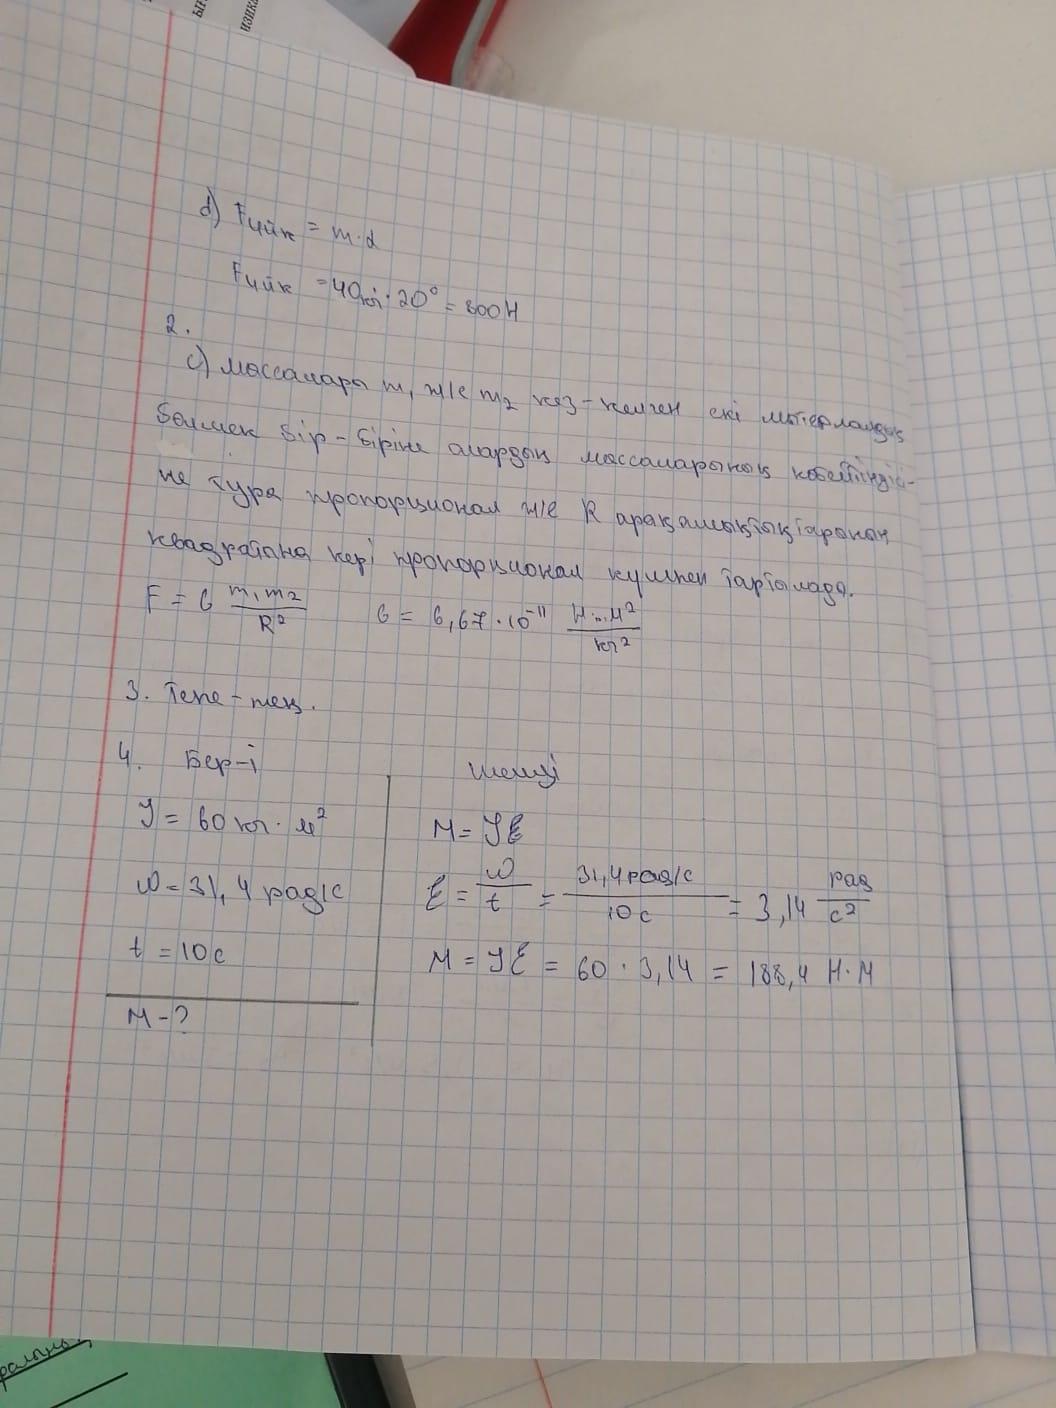 изика
d) Fүйк = m·d
Fүйк = 40кг·20° = 800Н
2.
c) Массалары m₁ ж/е m₂ кез-келген екі материалдық
бөлшек бір-біріне олардың массаларының көбейтіндісі-
не тура пропорционал ж/е R арақашықтықтарының
квадратына кері пропорционал күшпен тартылады.
F = G m₁m₂/R² G = 6,67·10⁻¹¹ Н·м²/кг²
3. Тепе-тең.
4. Бер-і Шешуі
J = 60 кг·м² M = Jℰ
ω = 31,4 рад/с ℰ = ω/t = 31,4 рад/с / 10с = 3,14 рад/с²
t = 10с M = Jℰ = 60·3,14 = 188,4 Н·М
M-?